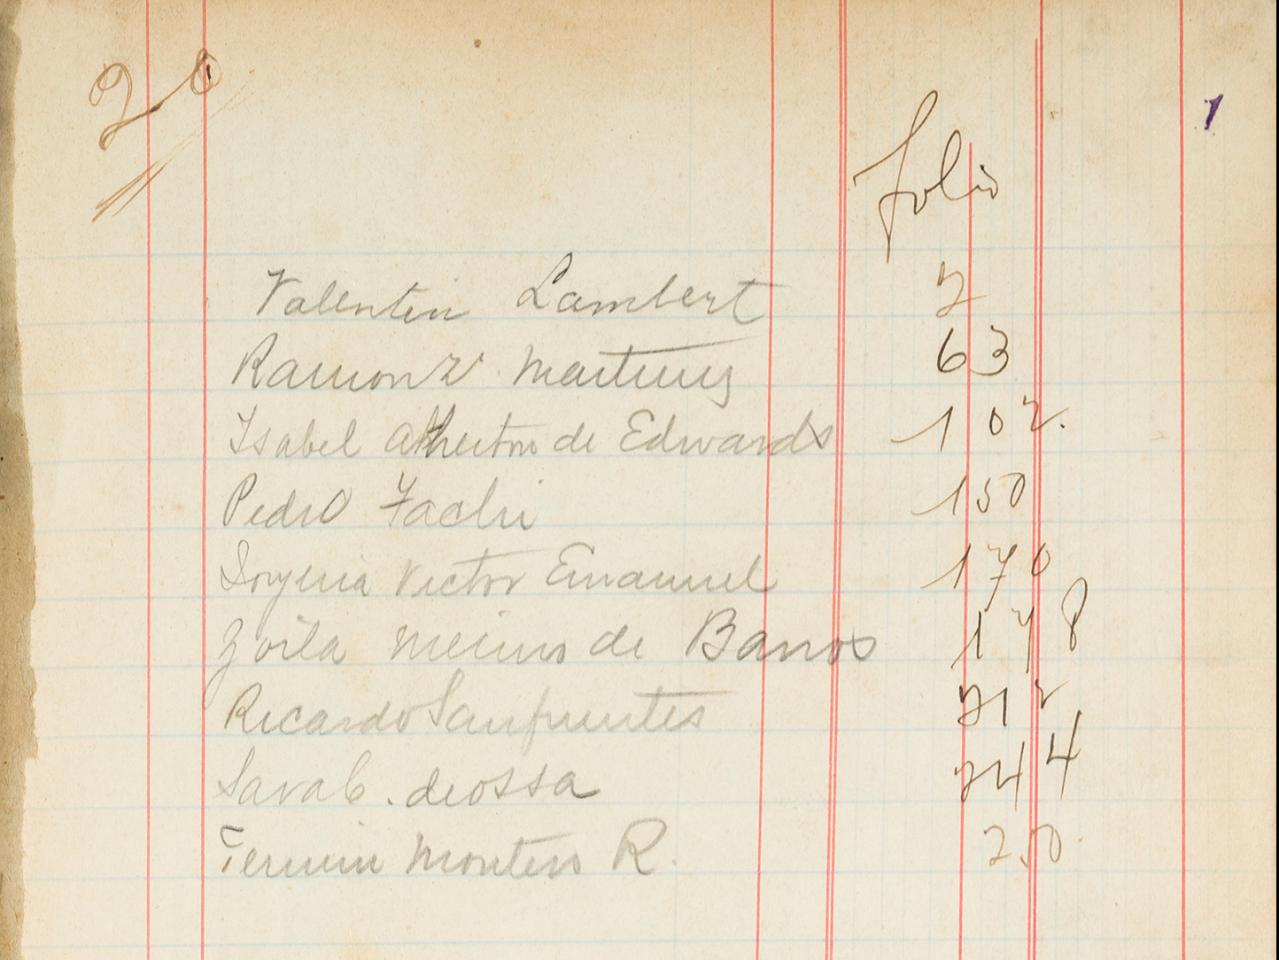 20
1
folio
Valentin Lambert 2
Ramon 2º Martinez 63
Isabel Atherton de Edwards 102.
Pedro Fachi 150
Victor Emanuel 170
Zoila Merino de Barros 178
Ricardo Sanfuentes 212
Sara C. de Ossa 244
Fermin Montero R. 250.